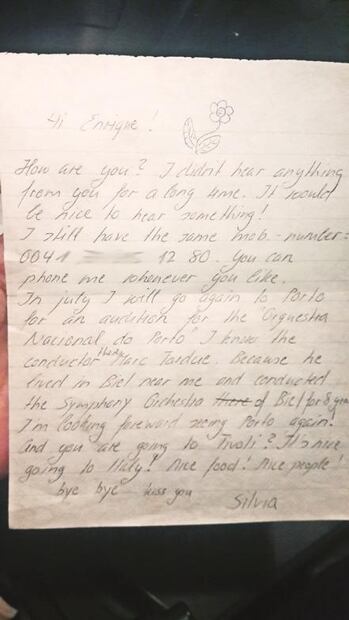 Hi Enrique!
How are you? I didn't hear anything
from you for a long time. It would
be nice to hear something!
I still have the same mob.-number:
0041 12 80. You can
phone me whenever you like.
In july I will go again to Porto
for an audition for the Orquestra
Nacional do Porto. I know the
conductor Marc Tardue. Because he
lived in Biel near me and conducted
the Symphony Orchestra of Biel for 8 years
I'm looking foreward seeing Porto again!
And you are going to Tivoli? It's nice
going to Italy! Nice food! Nice people!
bye bye kiss you
Silvia